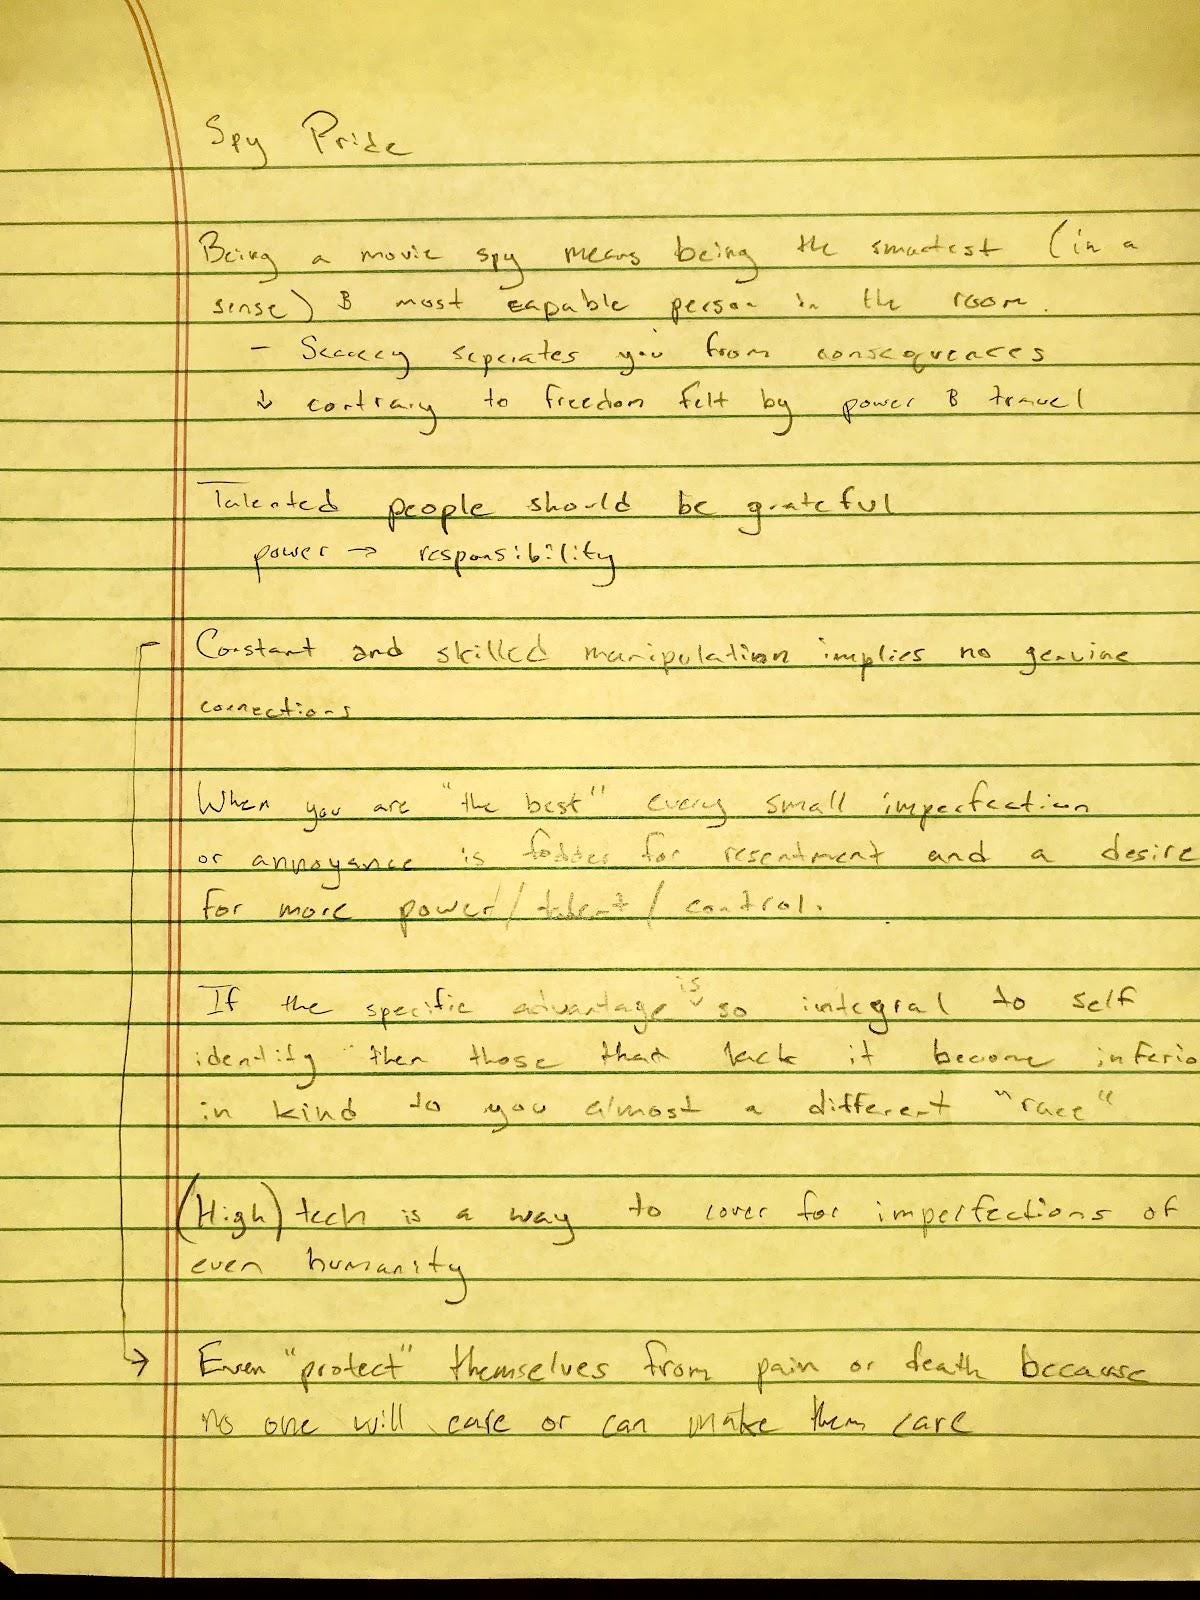 Spy Pride
Being a movie spy means being the smartest (in a
sense) & most capable person in the room.
- Secrecy seperates you from consequences
↳ contrary to freedom felt by power & travel
Talented people should be grateful
power → responsibility
Constant and skilled manipulation implies no genuine
connections
When you are "the best" every small imperfection
or annoyance is fodder for resentment and a desire
for more power/talent/control.
If the specific advantage is so integral to self
identity then those that lack it become inferio
in kind to you almost a different "race"
(High) tech is a way to cover for imperfections of
even humanity
Even "protect" themselves from pain or death because
no one will care or can make them care